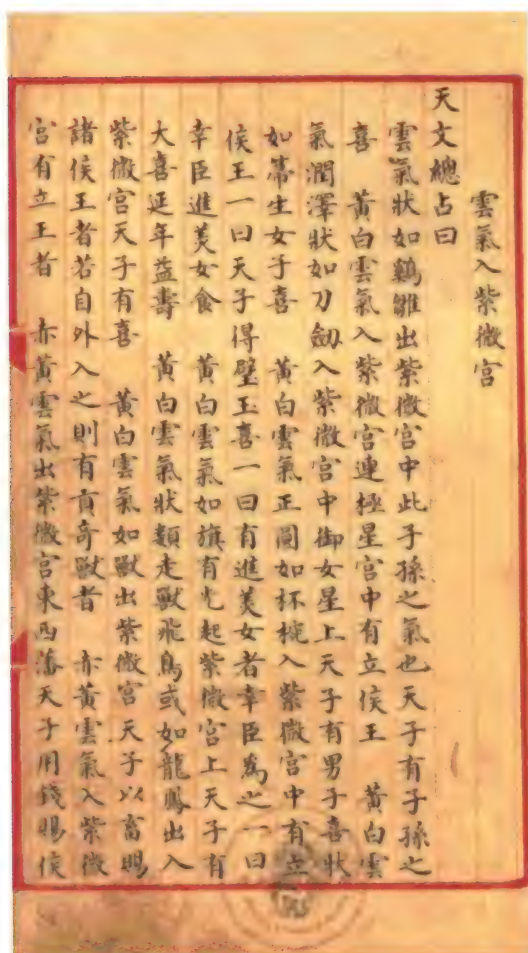 雲氣入紫微宮
天文總占曰
雲氣狀如鷄雛出紫微宮中此子孫之氣也天子有子孫之
喜　黃白雲氣入紫微宮連極星宮中有立侯王　黃白雲
氣潤澤狀如刀劔入紫微宮中御女星上天子有男子喜狀
如箒生女子喜　黃白雲氣正圓如杯椀入紫微宮中有立
侯王一曰天子得璧玉喜一曰有進美女者幸臣爲之一曰
幸臣進美女食　黃白雲氣如旗有光起紫微宮上天子有
大喜延年益壽　黃白雲氣狀類走獸飛鳥或如龍鳳出入
紫微宮天子有喜　黃白雲氣如獸出紫微宮天子以畜賜
諸侯王者若自外入之則有貢奇獸者　赤黃雲氣入紫微
宮有立王者　赤黃雲氣出紫微宮東西藩天子用錢賜侯